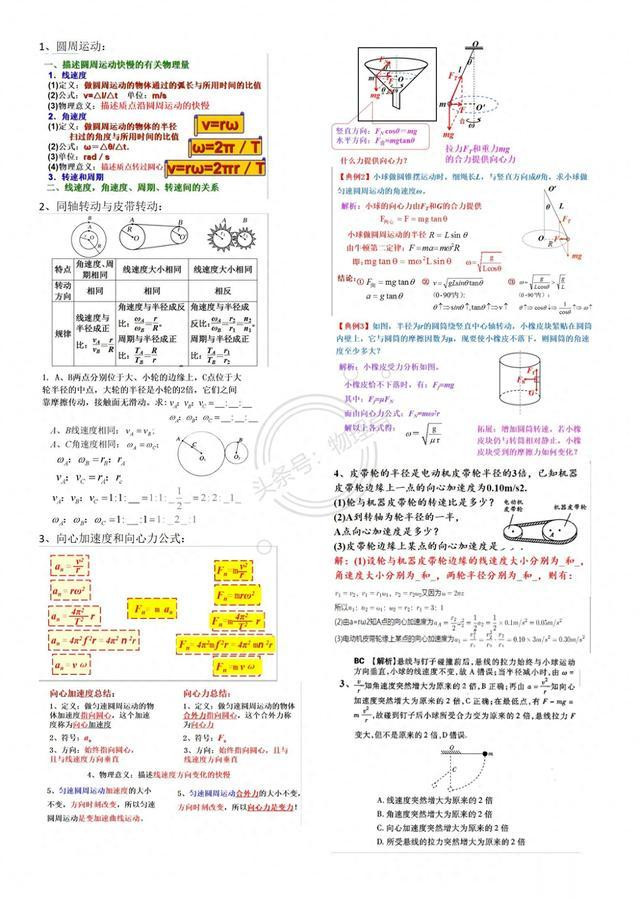 1、圆周运动：
一、描述圆周运动快慢的有关物理量
1．线速度
(1)定义：做圆周运动的物体通过的弧长与所用时间的比值
(2)公式：v=△l/△t 单位：m/s
(3)物理意义：描述质点沿圆周运动的快慢
2．角速度
(1)定义：做圆周运动的物体的半径
扫过的角度与所用时间的比值
(2)公式：ω=△θ/△t.
(3)单位：rad / s
(4)物理意义：描述质点转过圆心
3．转速和周期
二、线速度，角速度、周期、转速间的关系
v=rω
ω=2π / T
v=2πr / T
2、同轴转动与皮带转动：
特点 角速度、周期相同 线速度大小相同 线速度大小相同
转动方向 相同 相同 相反
规律 线速度与半径成正比：v_A/v_B = r/R
角速度与半径成反比：ω_A/ω_B = r/R
周期与半径成正比：T_A/T_B = R/r
角速度与半径成反比：ω_A/ω_B = r₂/r₁
周期与半径成正比：T_A/T_B = r₁/r₂
1．A、B两点分别位于大、小轮的边缘上，C点位于大
轮半径的中点，大轮的半径是小轮的2倍，它们之间
靠摩擦传动，接触面无滑动。求：v_A：v_B：v_C =__:__:__
ω_A：ω_B：ω_C =__:__:__
A、B线速度相同：v_A = v_B;
A、C角速度相同：ω_A = ω_C;
ω_A：ω_B = r_B：r_A
v_A：v_C = r_A：r_C
3、向心加速度和向心力公式：
a_n = v²/r
a_n = rω²
a_n = 4π²/T² r
a_n = 4π² f² r = 4π² n² r
a_n = v ω
F_n = m a_n
F_n = m v²/r
F_n = mrω²
F_n = m 4π²/T² r
F_n = 4π² m f² r = 4π² m n² r
F_n = m v ω
向心加速度总结：
1、定义：做匀速圆周运动的物
体加速度指向圆心，这个加速
度称为向心加速度
2、符号：a_n
3、方向：始终指向圆心，且
且与线速度方向垂直
向心力总结：
1、定义：做匀速圆周运动的物体
合外力指向圆心，这个合外力称
为向心力
2、符号：F_n
3、方向：始终指向圆心，且与
线速度方向垂直
4、物理意义：描述线速度方向变化的快慢
5、匀速圆周运动加速度的大小
不变，方向时刻改变，所以匀速
圆周运动是变加速曲线运动。
5、匀速圆周运动合外力的大小不变，
方向时刻改变，所以向心力是变力！
竖直方向：F_N cosθ＝mg
水平方向：F_合=mgtanθ
拉力F_T和重力mg
的合力提供向心力
什么力提供向心力？
【典例2】小球做圆锥摆运动时，细绳长L，与竖直方向成θ角，求小球做
匀速圆周运动的角速度ω。
解析：小球的向心力由F_T和G的合力提供
F_向心 = F = mg tanθ
小球做圆周运动的半径 R = L sinθ
由牛顿第二定律：F = ma = mω²R
即：mg tanθ = mω²L sinθ
ω = √(g/(L cosθ))
结论：① F_向 = mg tanθ
a = g tanθ
② v = √(gL sinθ tanθ)
(0-90°内)：
θ↑⇒sinθ↑,tanθ↑⇒v↑
【典例3】如图，半径为r的圆筒绕竖直中心轴转动，小橡皮块紧贴在圆筒
内壁上，它与圆筒的摩擦因数为μ，现要使小橡皮不落下，则圆筒的角速
度至少多大？
解析：小橡皮受力分析如图。
小橡皮恰不下落时，有：F_f=mg
其中：F_f=μF_N
而由向心力公式：F_N=mω²r
解以上各式得：ω = √(g/(μr))
拓展：增加圆筒转速，若小橡
皮块仍与转筒相对静止，小橡
皮块受到的摩擦力如何变化？
4、皮带轮的半径是电动机皮带轮半径的3倍，已知机器
皮带轮边缘上一点的向心加速度为0.10m/s2.
(1)轮与机器皮带轮的转速比是多少？
(2)A到转轴为轮半径的一半，
A点向心加速度是多少？
(3)皮带轮边缘上某点的向心加速度是
电动机
皮带轮
机器皮带轮
解：(1)设轮与机器皮带轮边缘的线速度大小分别为_和_，
角速度大小分别为_和_，两轮半径分别为_和_，则有：
BC 【解析】悬线与钉子碰撞前后，悬线的拉力始终与小球运动
方向垂直，小球的线速度不变，故 A 错误；当半径减小时，由 ω =
3、v/r 知角速度突然增大为原来的 2 倍，B 正确；再由 a = v²/r 知向心
加速度突然增大为原来的 2 倍，C 正确；在最低点，有 F − mg =
m v²/r，故碰到钉子后小球所受合力变为原来的 2 倍，悬线拉力 F
变大，但不是原来的 2 倍，D 错误.
A. 线速度突然增大为原来的 2 倍
B. 角速度突然增大为原来的 2 倍
C. 向心加速度突然增大为原来的 2 倍
D. 所受悬线的拉力突然增大为原来的 2 倍